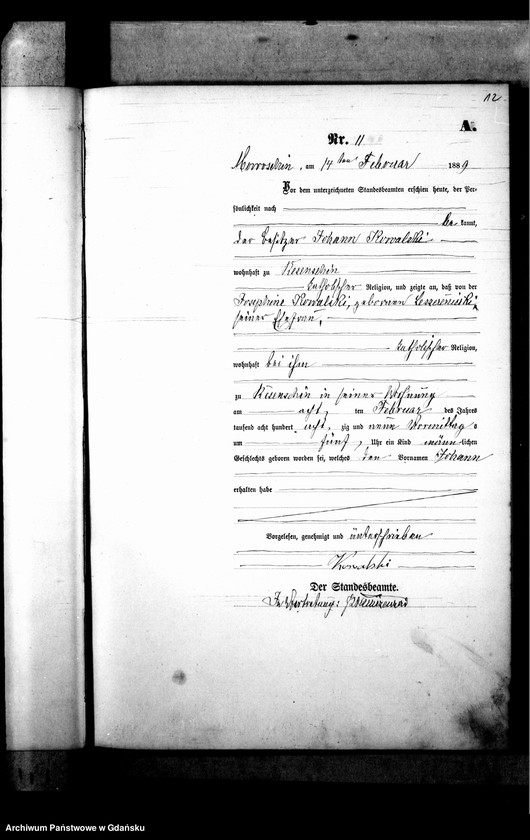 12
A.
Nr. 11
Morroschin, am 14ten Februar 1889
Vor dem unterzeichneten Standesbeamten erschien heute, der Per-
sönlichkeit nach
be kannt,
der Besitzer Johann Kowalski
wohnhaft zu
katholischer Religion, und zeigte an, daß von der
Josephine Kowalski, geborenen
seiner Ehefrau,
katholischer Religion,
wohnhaft bei ihm
zu in seiner Wohnung
am acht ten Februar des Jahres
tausend acht hundert acht zig und neun Vormittag s
um fünf Uhr ein Kind männ lichen
Geschlechts geboren worden sei, welches den Vornamen Johann
erhalten habe
Vorgelesen, genehmigt und unterschrieben
Kowalski
Der Standesbeamte.
In Vertretung:
Archiwum Państwowe w Gdańsku